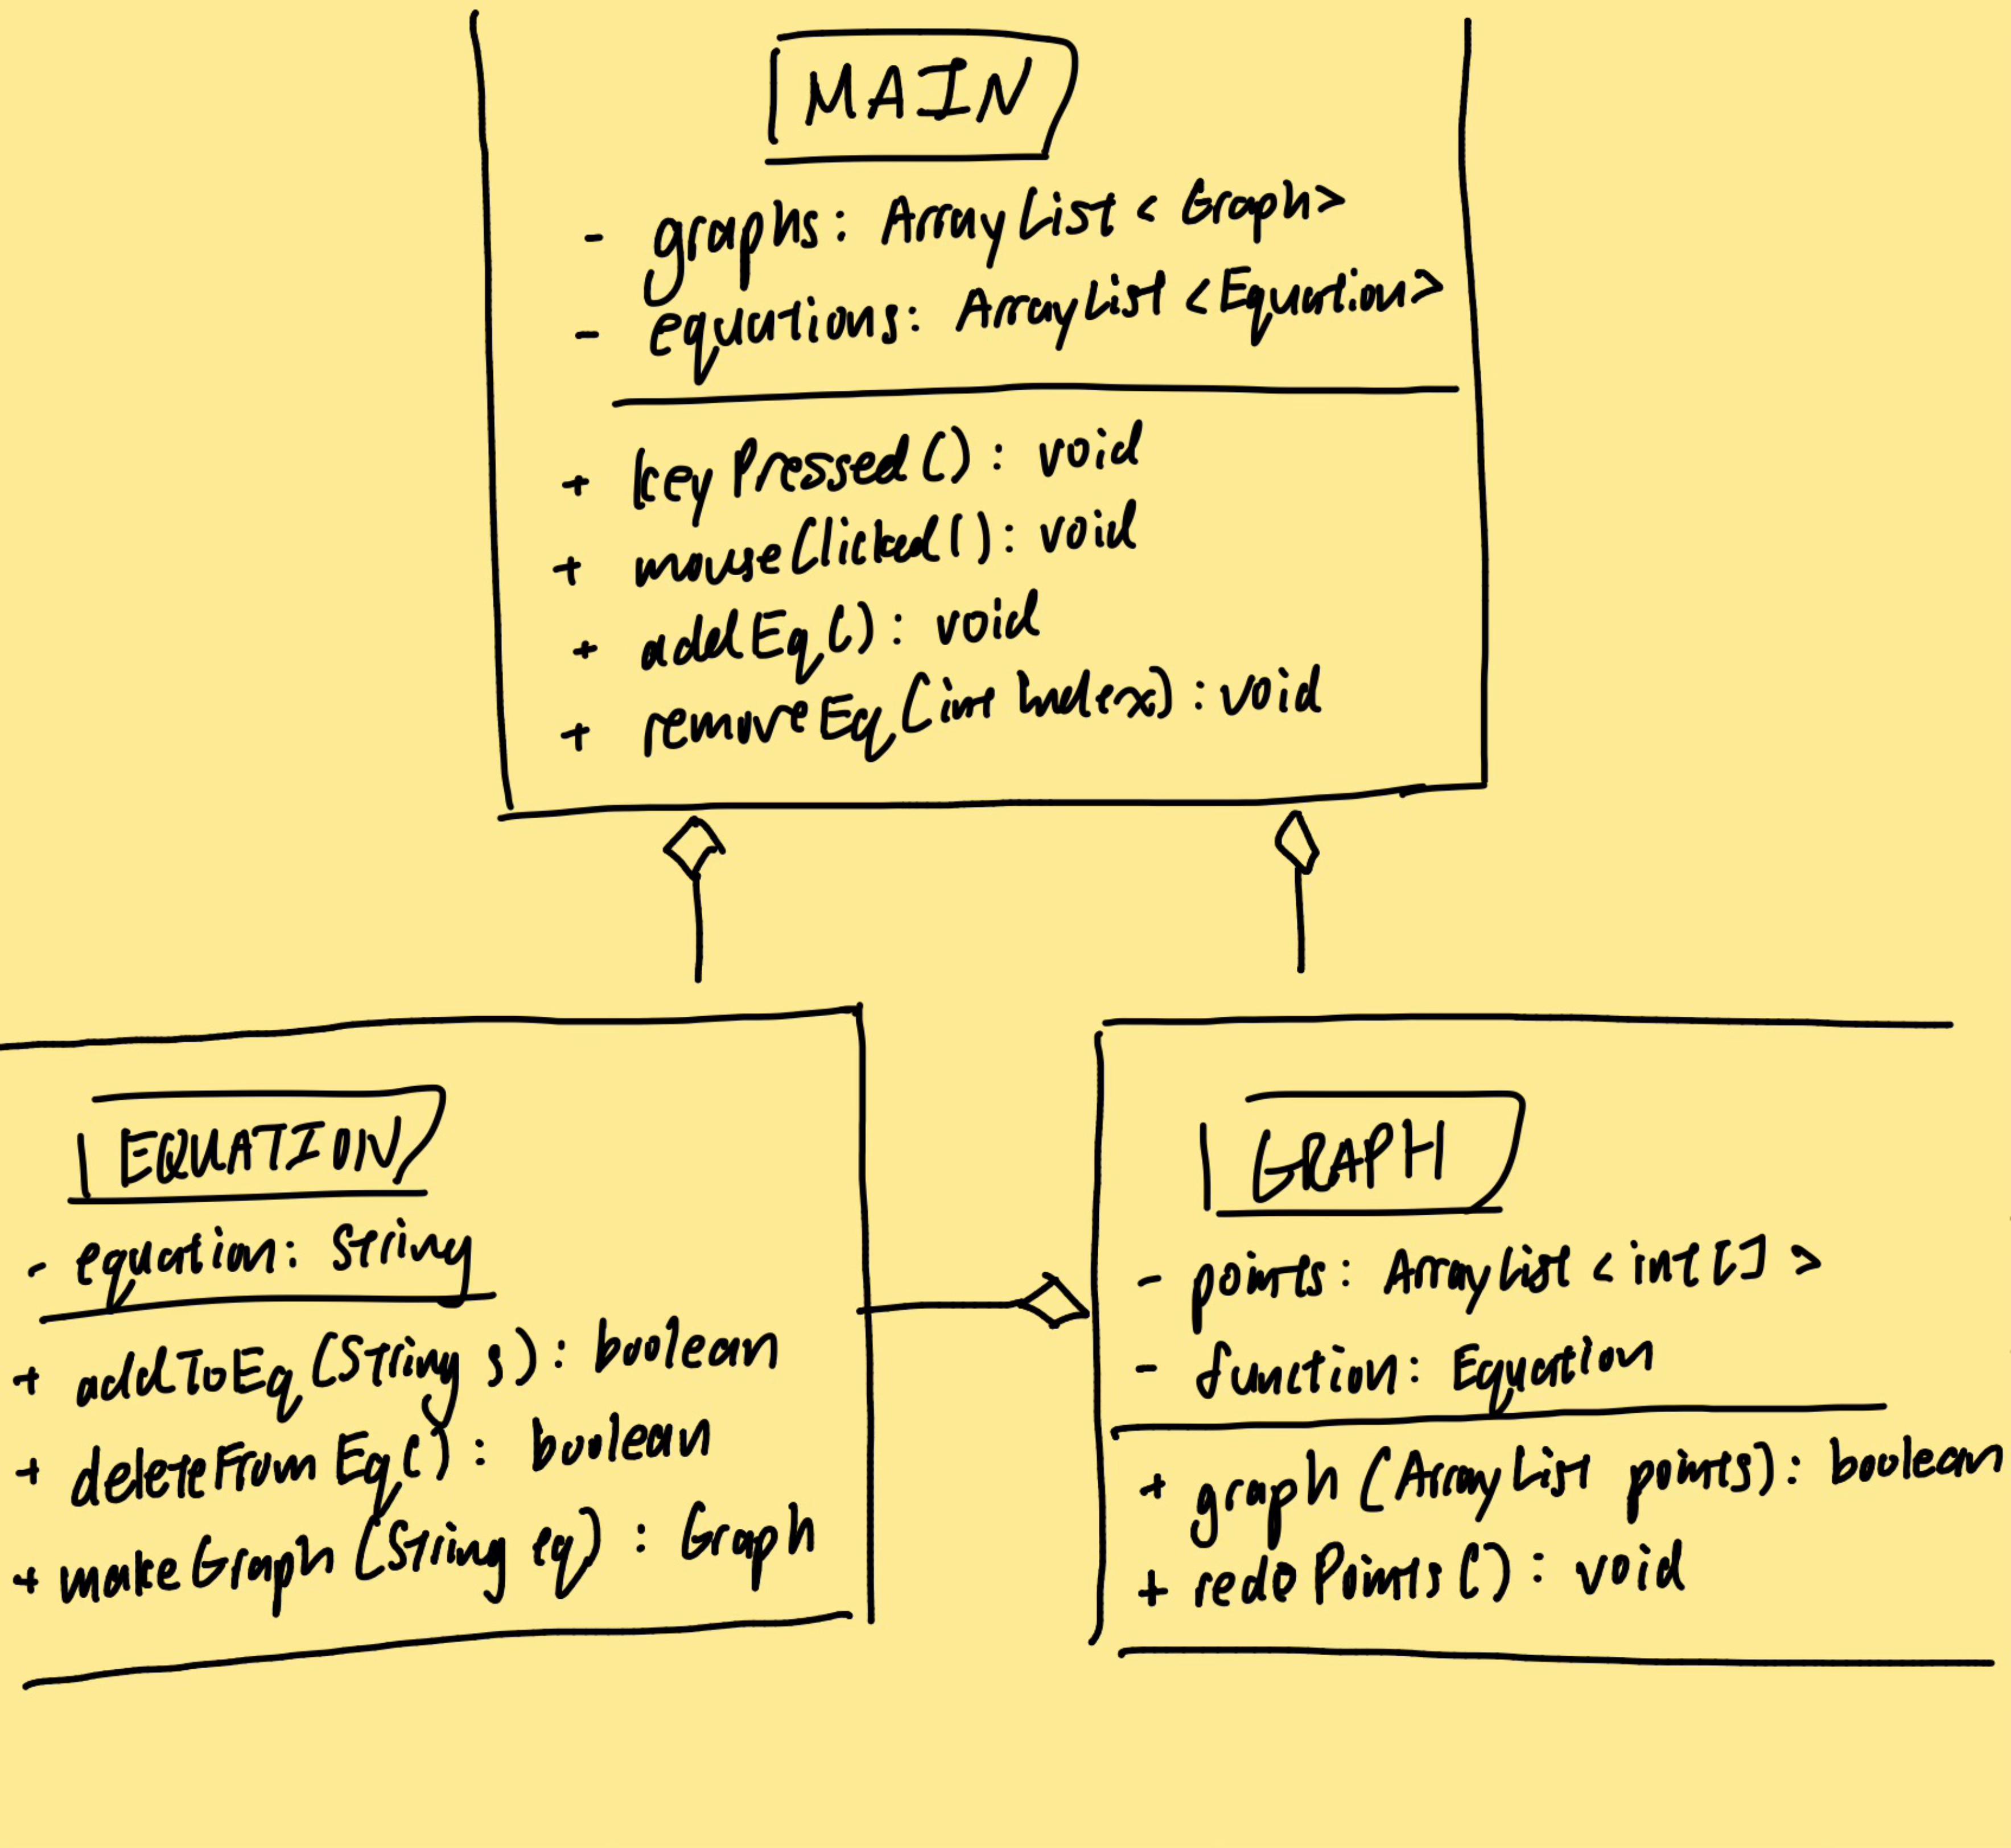 MAIN
- graphs: ArrayList<Graph>
- equations: ArrayList<Equation>
+ keyPressed(): void
+ mouseClicked(): void
+ addEq(): void
+ removeEq(int index): void
EQUATION
- equation: String
+ addToEq(String s): boolean
+ deleteFromEq(): boolean
+ makeGraph(String eq): Graph
GRAPH
- points: ArrayList<int[]>
- function: Equation
+ graph(ArrayList points): boolean
+ redoPoints(): void